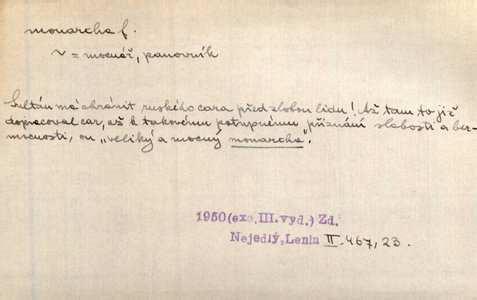 monarcha f.
v = mocnář, panovník
Sultán má chránit ruského cara před zlobou lidu! Až tam to již
dopracoval car, až k takovému potupnému „přiznání slabosti a bez-
mocnosti, on „veliký a mocný monarcha".
1950 (exc. III. vyd.) Zd.
Nejedlý, Lenin II-467, 23.